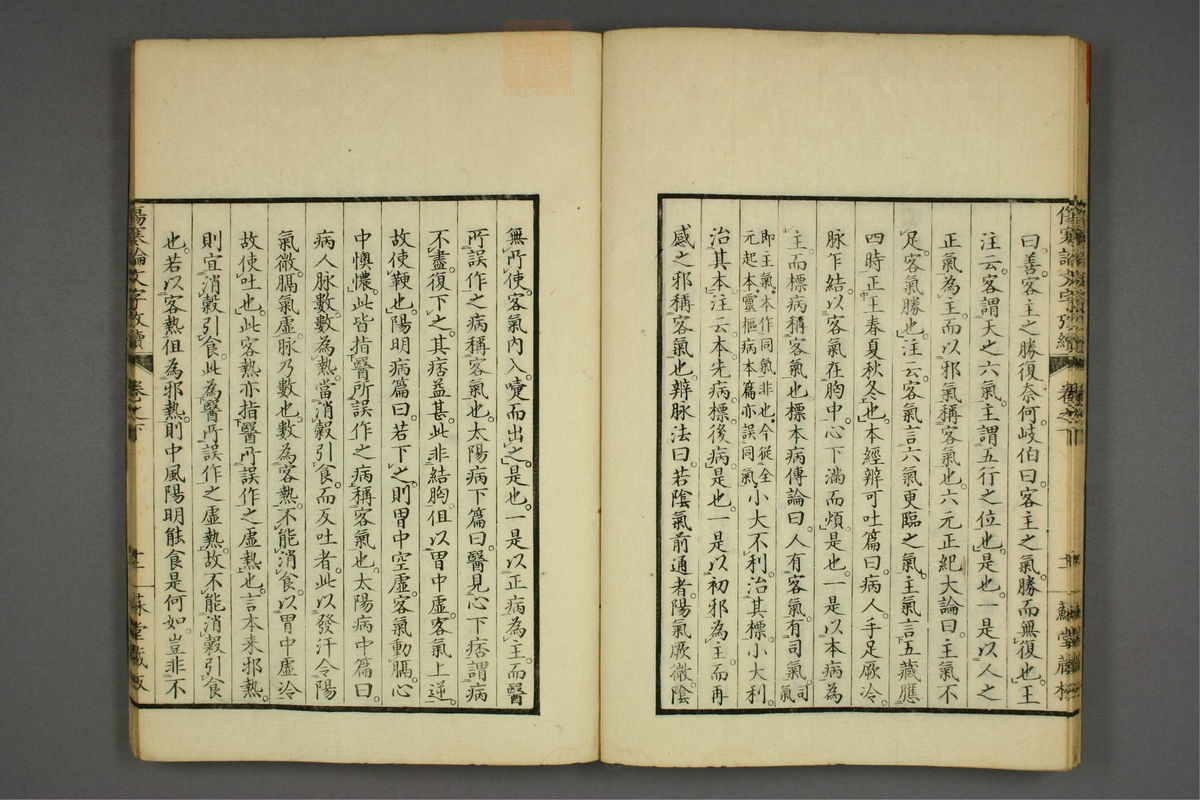 曰。善。客主之勝復奈何。岐伯曰。客主之氣。勝而無復也。王
注云。客謂天之六氣。主謂五行之位也。是也。一是以人之
正氣為主。而以邪氣稱客氣也。六元正紀大論曰。主氣不
足。客氣勝也。注云。客氣言六氣更臨之氣。主氣言五藏應
四時。正王春夏秋冬也。本經辨可吐篇曰。病人手足厥冷。
脉乍結。以客氣在胸中。心下滿而煩。是也。一是以本病為
主。而標病稱客氣也。標本病傳論曰。人有客氣。有司氣。司氣
即主氣。本作同氣非也。今從全
元起本。靈樞病本篇亦誤同氣
小大不利。治其標。小大利
治其本。注云。本先病。標後病。是也。一是以初邪為主。而再
感之邪稱客氣也。辨脉法曰。若陰氣前通者。陽氣厥微。陰
無所使。客氣内入。嚏而出之。是也。一是以正病為主。而醫
所誤作之病稱客氣也。太陽病下篇曰。醫見心下痞。謂病
不盡。復下之。其痞益甚。此非結胸。但以胃中虛。客氣上逆。
故使鞕也。陽明病篇曰。若下之。則胃中空虛。客氣動膈。心
中懊憹。此皆指醫所誤作之病。稱客氣也。太陽病中篇曰。
病人脉數。數為熱。當消穀引食。而反吐者。此以發汗。令陽
氣微。膈氣虛。脉乃數也。數為客熱。不能消食。以胃中虛冷
故使吐也。此客熱亦指醫所誤作之虛熱也。言本來邪熱。
則宜消穀引食。此為醫所誤作之虛熱。故不能消穀引食
也。若以客熱但為邪熱。則中風陽明能食是何如。豈非不
傷寒論文字攷續
卷之下